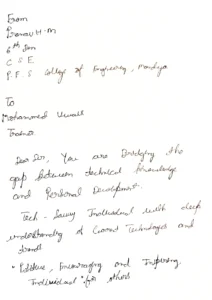 From
Pranav H.M
6th Sem
C.S.E
P.E.S College of Engineering, Mandya
To
Mohammed
Trainer
Dear Sir, You are Bridging the
gap between technical knowledge
and Personal Development.
Tech-Savvy Individual with deep
understanding of Current Technologies and
trends
• Positive, Encouraging and Inspiring
Individual for others